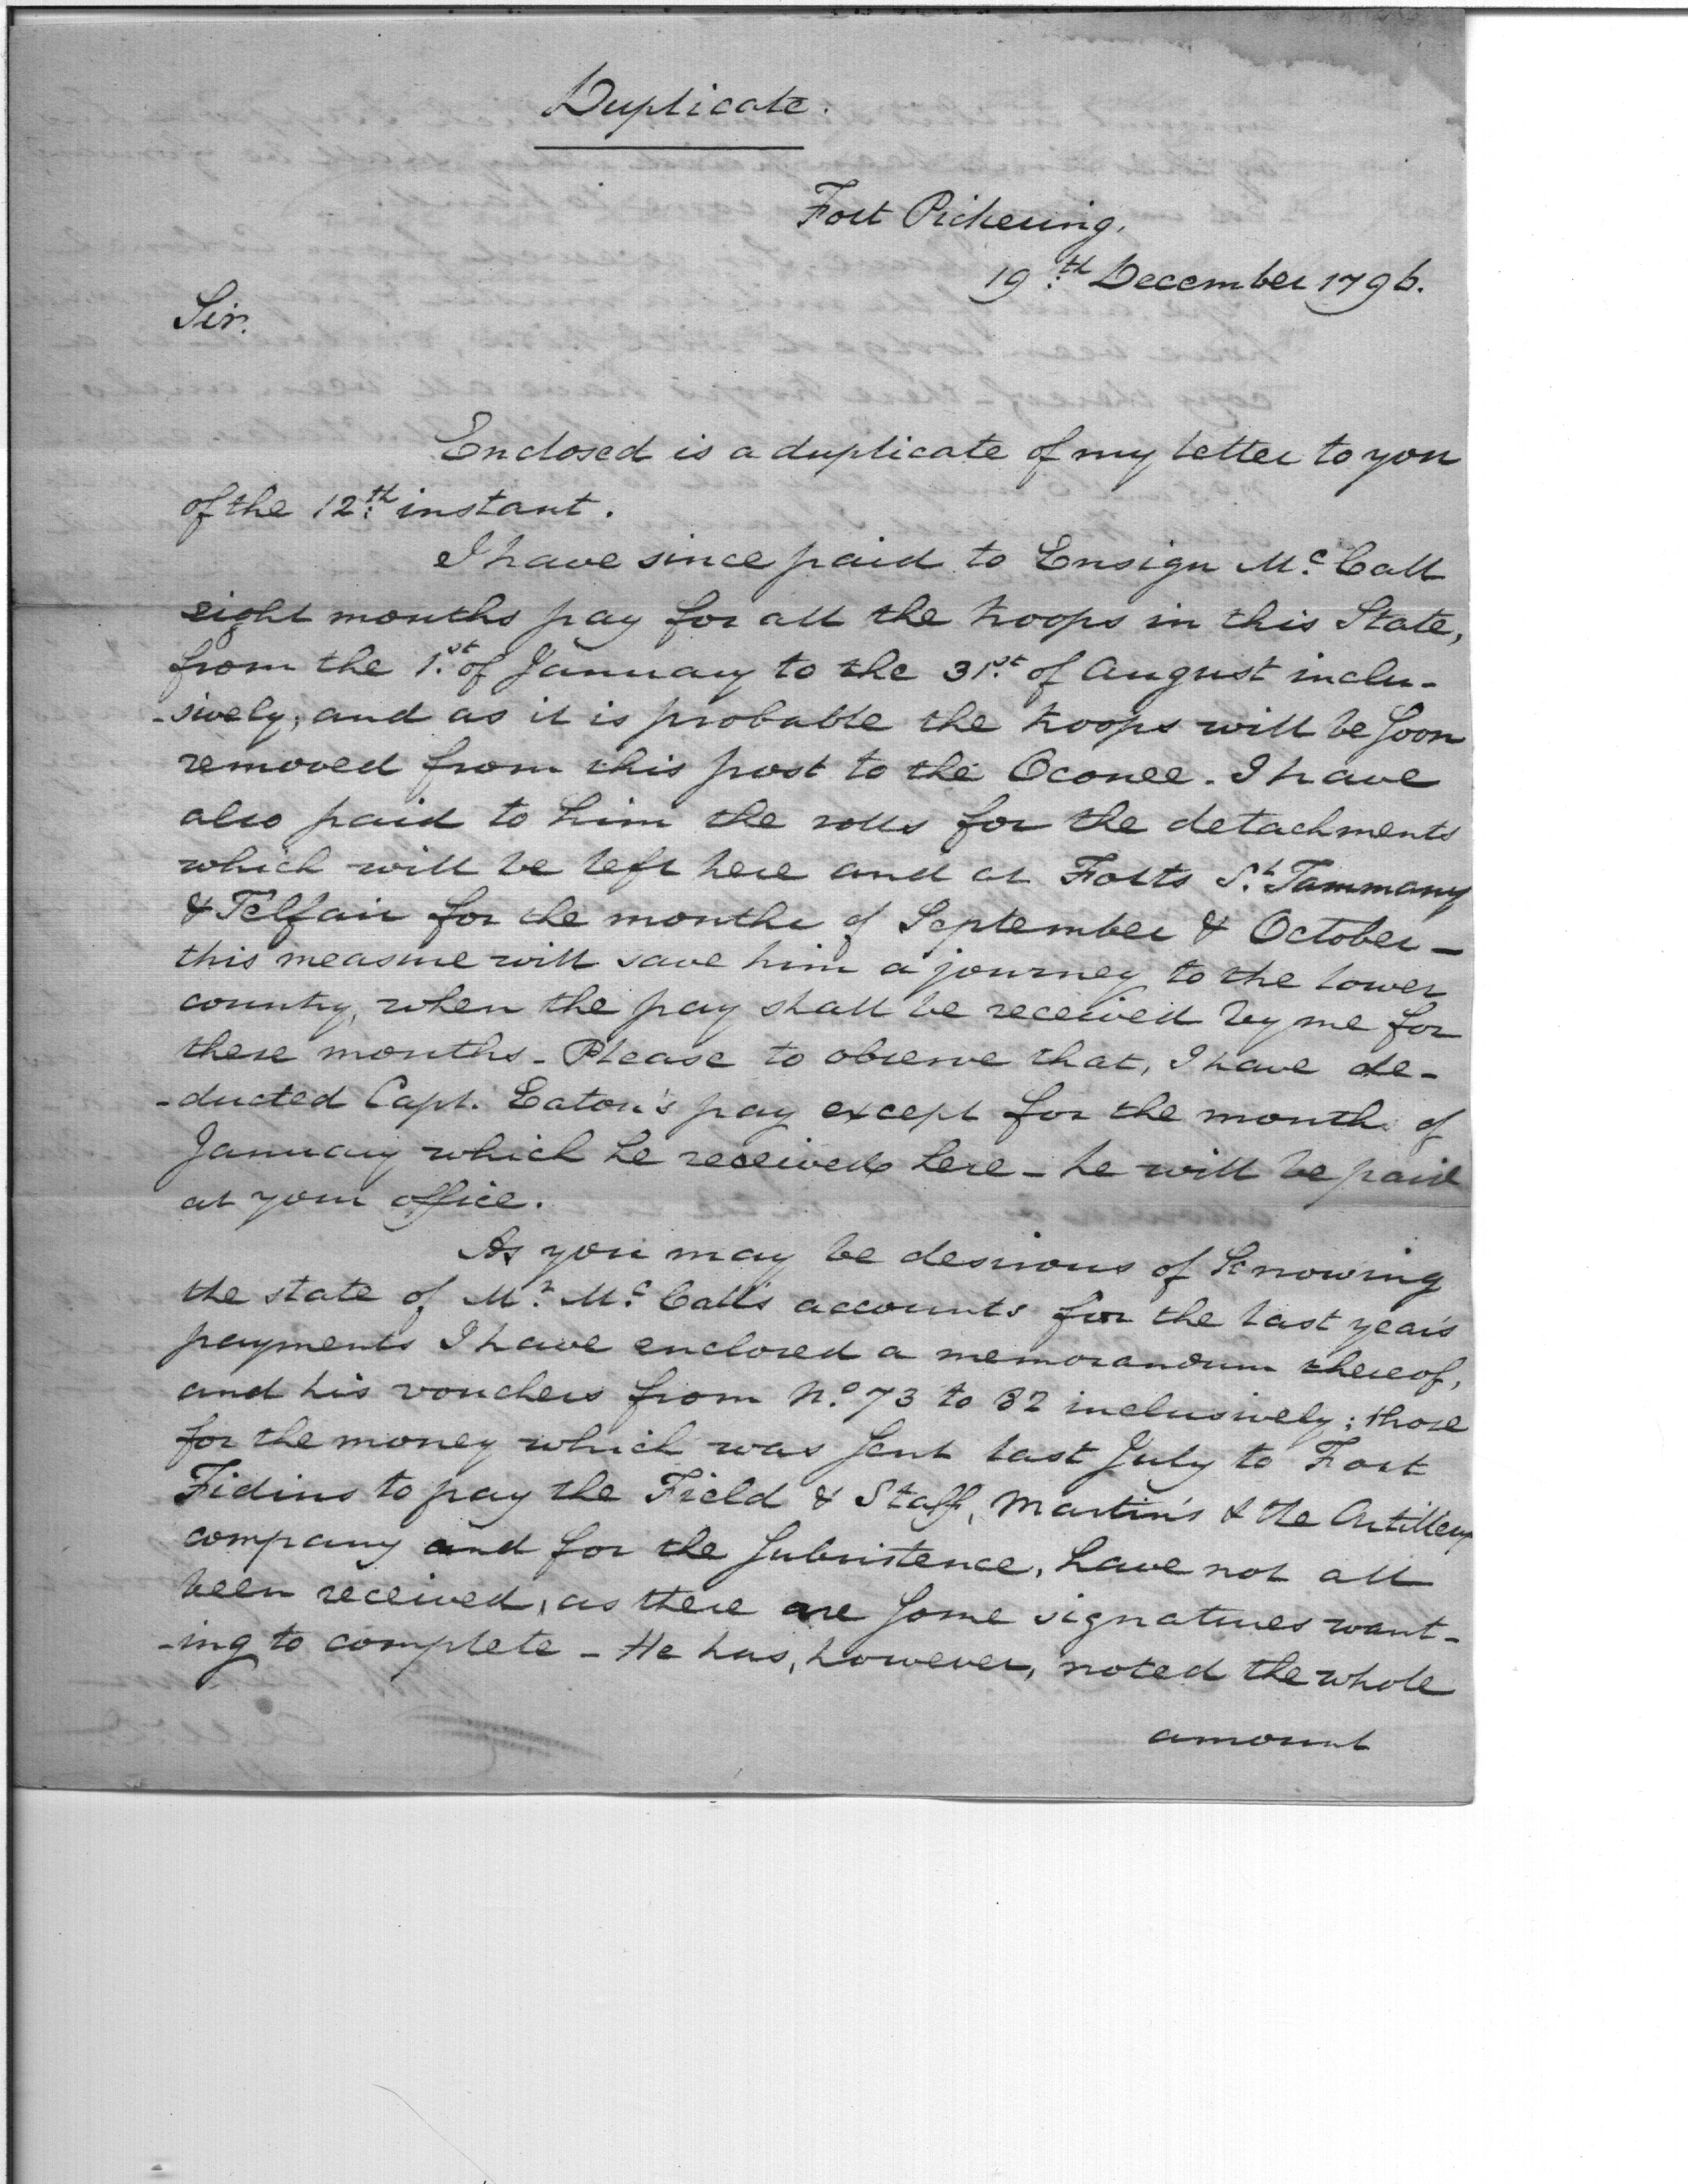 Duplicate.
Fort Pickering.
19th December 1796.
Sir.
Enclosed is a duplicate of my letter to you
of the 12th instant.
I have since paid to Ensign Mc. Call
eight months pay for all the troops in this State,
from the 1st of January to the 31st of August inclu-
-sively, and as it is probable the troops will be soon
removed from this post to the Oconee. I have
also paid to him the rolls for the detachments
which will be left here and at Forts St. Tammany
& Telfair for the months of September & October -
this measure will save him a journey to the lower
country, when the pay shall be received by me for
these months - Please to observe that, I have de-
-ducted Capt. Eaton's pay except for the month of
January which he received here - he will be paid
at your office.
As you may be desirous of knowing
the state of Mr. Mc. Call's accounts for the last year's
payments I have enclosed a memorandum thereof,
and his vouchers from No. 73 to 82 inclusively; those
for the money which was sent last July to Fort
Fidius to pay the Field & Staff, Martin's & the Artillery
company and for the subsistence, have not all
been received, as there are some signatures want-
-ing to complete - He has, however, noted the whole
amount